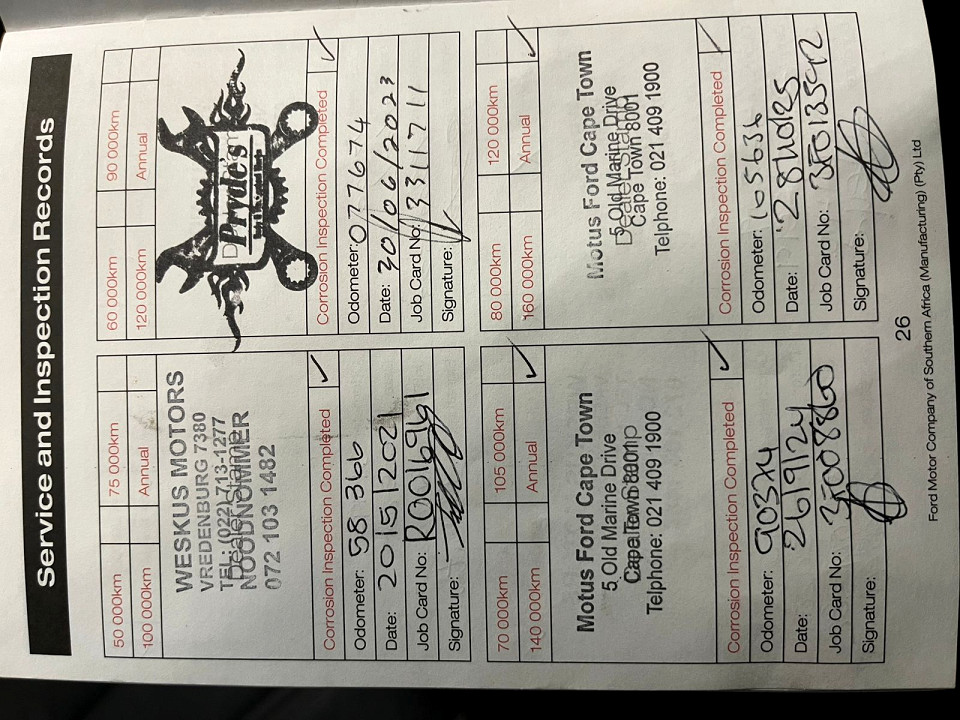 Service and Inspection Records
50 000km 75 000km
100 000km Annual
WESKUS MOTORS
VREDENBURG 7380
TEL: (022) 713-1277
NOODNOMMER
072 103 1482
Corrosion Inspection Completed ✓
Odometer: 58 366
Date: 2015/2021
Job Card No: R0016961
Signature:
60 000km 90 000km
120 000km Annual
Pryde's
Corrosion Inspection Completed ✓
Odometer: 077674
Date: 30/06/2023
Job Card No: 3311711
Signature:
70 000km 105 000km
140 000km Annual ✓
Motus Ford Cape Town
5 Old Marine Drive
Cape Town 8001
Telphone: 021 409 1900
Corrosion Inspection Completed ✓
Odometer: 90374
Date: 26/9/24
Job Card No: 35008860
Signature:
80 000km 120 000km
160 000km Annual ✓
Motus Ford Cape Town
5 Old Marine Drive
Cape Town 8001
Telphone: 021 409 1900
Corrosion Inspection Completed ✓
Odometer: 105636
Date:
Job Card No: 35013592
Signature:
26
Ford Motor Company of Southern Africa (Manufacturing) (Pty) Ltd